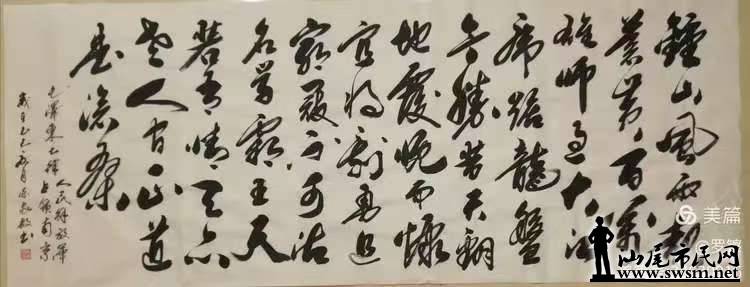 鍾山風雨起
蒼黄百萬
雄師過大江
虎踞龍盤
今勝昔天翻
地覆慨而慷
宜将剩勇追
窮寇不可沽
名學霸王天
若有情天亦
老人间正道
是滄桑
毛澤東七律 人民解放軍
占領南京
美篇
汕尾市民网
www.swsm.net